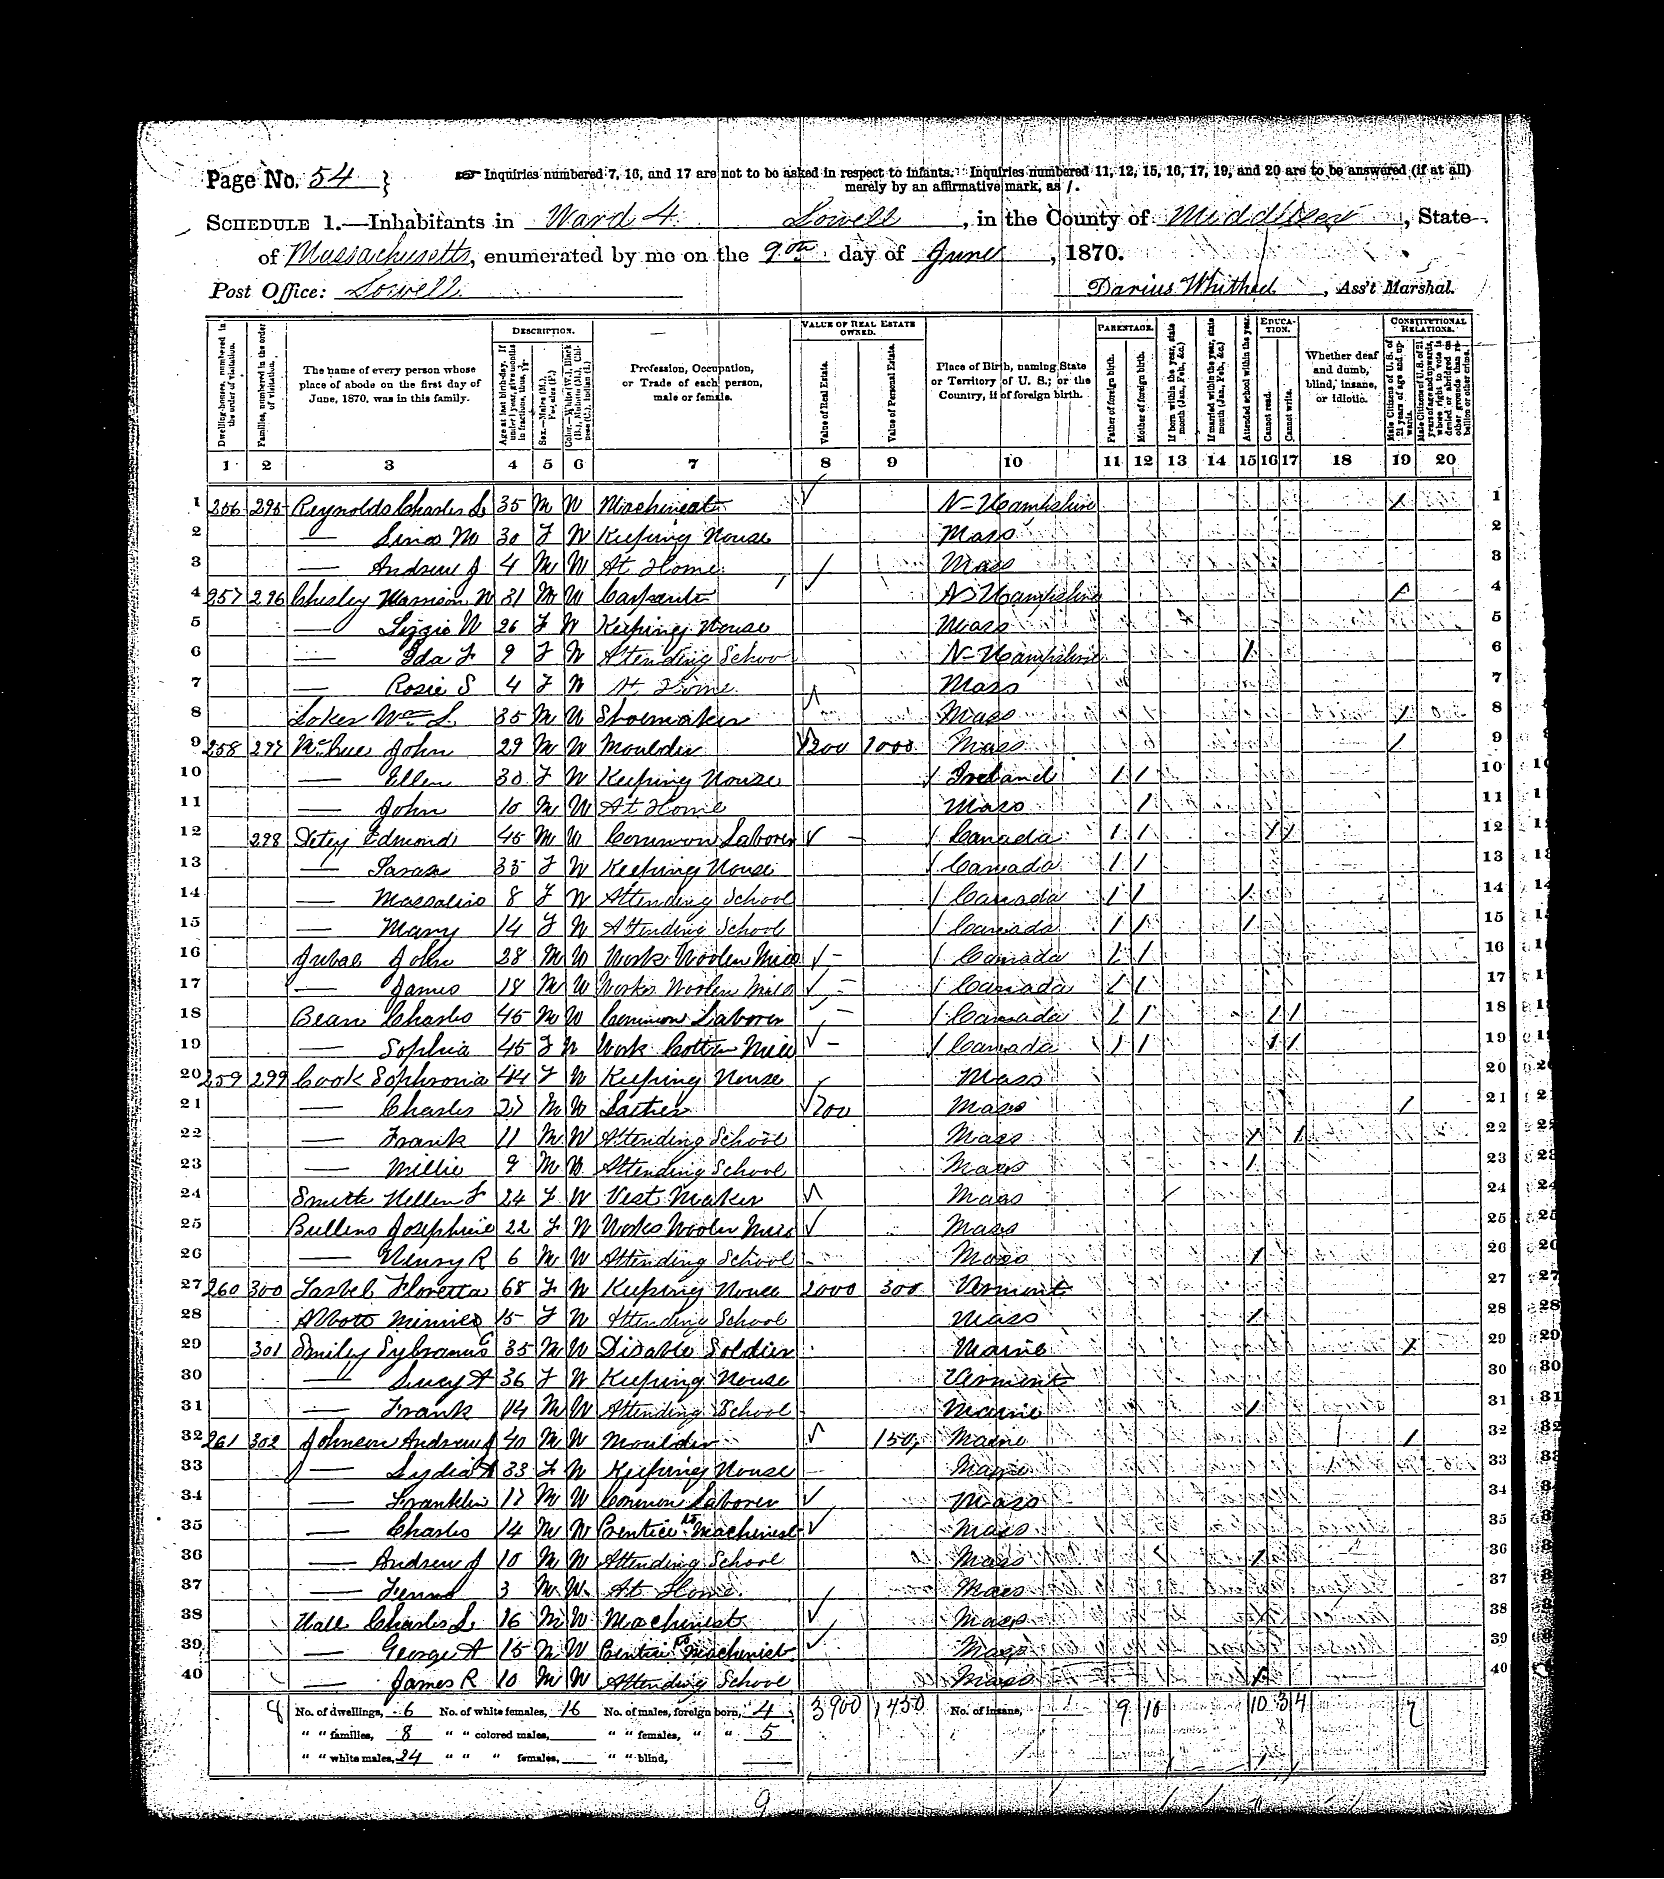 Page No. 54 } ☞ Inquiries numbered 7, 16, and 17 are not to be asked in respect to infants. Inquiries numbered 11, 12, 15, 16, 17, 19, and 20 are to be answered (if at all)
merely by an affirmative mark, as /.
SCHEDULE 1.—Inhabitants in Ward 4 Lowell, in the County of Middlesex, State
of Massachusetts, enumerated by me on the 9th day of June, 1870.
Post Office: Lowell Darius Whithed, Ass't Marshal.
DESCRIPTION. VALUE OF REAL ESTATE OWNED. PARENTAGE. EDUCATION. CONSTITUTIONAL RELATIONS.
Dwelling-houses, numbered in the order of visitation.
Families, numbered in the order of visitation.
The name of every person whose place of abode on the first day of June, 1870, was in this family.
Age at last birth-day. If under 1 year, give months in fractions, thus, 3/12
Sex.—Males (M.), Females (F.)
Color.—White (W.), Black (B.), Mulatto (M.), Chinese (C.), Indian (I.)
Profession, Occupation, or Trade of each person, male or female.
Value of Real Estate.
Value of Personal Estate.
Place of Birth, naming State or Territory of U. S.; or the Country, if of foreign birth.
Father of foreign birth.
Mother of foreign birth.
If born within the year, state month (Jan., Feb., &c.)
If married within the year, state month (Jan., Feb., &c.)
Attended school within the year.
Cannot read.
Cannot write.
Whether deaf and dumb, blind, insane, or idiotic.
Male Citizens of U. S. of 21 years of age and upwards.
Male Citizens of U. S. of 21 years of age and upwards, whose right to vote is denied or abridged on other grounds than rebellion or other crime.
1 2 3 4 5 6 7 8 9 10 11 12 13 14 15 16 17 18 19 20
1 256 295 Reynolds Charles L 35 M W Machinist N-Hampshire / 1
2 — M 30 F W Keeping House Mass 2
3 — Andrew J 4 M W At Home Mass 3
4 257 296 Chesley Harrison W 31 M W Carpenter N-Hampshire / 4
5 — Lizzie W 26 F W Keeping House Mass 5
6 — Ida F 9 F W Attending School N-Hampshire / 6
7 — Rosie S 4 F W At Home Mass 7
8 Loker Wm L 35 M W Shoemaker Mass / 8
9 258 297 McCue John 29 M W Moulder 1200 1000 Mass / 9
10 — Ellen 30 F W Keeping House / Ireland / / 10
11 — John 10 M W At Home Mass / 11
12 298 Edmond 45 M W Common Laborer / Canada / / / / 12
13 — Sarah 35 F W Keeping House / Canada / / 13
14 — 8 F W Attending School / Canada / / / 14
15 — Mary 14 F W Attending School / Canada / / / 15
16 Jubal John 28 M W Work Woolen Mill / Canada / / 16
17 — James 18 M W Works Woolen Mill / Canada / / 17
18 Bean Charles 45 M W Common Laborer / Canada / / / / 18
19 — Sophia 45 F W Work Cotton Mill / Canada / / / / 19
20 259 299 Cook Sophronia 44 F W Keeping House Mass 20
21 — Charles 27 M W 700 Mass / 21
22 — Frank 11 M W Attending School Mass / / 22
23 — Millie 9 M W Attending School Mass / 23
24 Smith Hellen F 24 F W Vest Maker Mass 24
25 Bullens Josephine 22 F W Works Woolen Mill Mass 25
26 — Henry R 6 M W Attending School Mass / 26
27 260 300 Floretta 68 F W Keeping House 2000 300 Vermont 27
28 Abbott 15 F W Attending School Mass / 28
29 301 Smiley Sylvanus G 35 M W Disable Soldier Maine / 29
30 — Lucy A 36 F W Keeping House Vermont 30
31 — Frank 14 M W Attending School Maine / 31
32 261 302 Johnson Andrew J 40 M W Moulder 150 Maine / 32
33 — Lydia A 33 F W Keeping House Maine 33
34 — Franklin 17 M W Common Laborer Mass 34
35 — Charles 14 M W Prentice to Machinest Mass 35
36 — Andrew J 10 M W Attending School Mass / 36
37 — 3 M W At Home Mass 37
38 Hall Charles L 16 M W Machinest Mass 38
39 — George A 15 M W Prentice to Machinist Mass 39
40 — James R 10 M W Attending School Mass / 40
8 No. of dwellings, 6 No. of white females, 16 No. of males, foreign born, 4 3900 1450 No. of insane, 9 10 10 3 4 7
" " families, 8 " " colored males, " " females, " " 5
" " white males, 24 " " " females, " " blind,
9